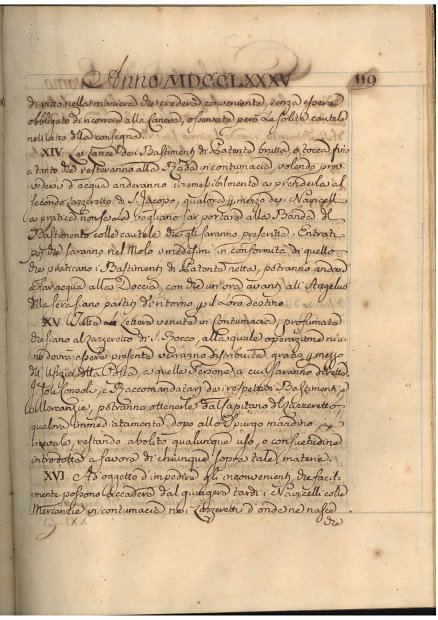 Anno MDCCLXXXV 119
di vitto nella maniera che crederà conveniente, senza essere
obbligato di ricorrere alla Cancell., osservate però le solite cautele
nell'atto della consegna.
XIV. Le Lance dei Bastimenti di Patente brutta, o tocca fino
a tanto che resteranno alla in contumacia, volendo prov-
vedersi d'acqua anderanno a prenderla al
secondo Lazzeretto di S. Jacopo, qualora mezzo dei Navicelli
a pratica non se la vogliano far portare alla Banda del
Bastimento colle cautele che gli saranno prescritte. Entrati
poi che saranno nel Molo i medesimi in conformità di quello
che praticano i Bastimenti di Patente netta, potranno andare
a far acqua alla Doccia, con che un'ora avanti all'Angelus
della sera siano partiti di ritorno, p. il loro destino.
XV. Le Lettere venute in Contumacia, profumate
che siano al Lazzeretto di S. Rocco, alla quale operazione niu-
no dovrà essere presente verranno distribuite gratis p. mezzo
dell'Ufizio della Posta, a quelle Persone a cui saranno dirette
I soli Consoli, e Raccomandatarj dei respettivi Bastimenti, e
Mercanzie, potranno ottenerle dal Capitano del Lazzeretto
qualora immediatamente dopo allo Spurgo mandino a
riceverle, restando abolito qualunque uso, o consuetudine
introdotta a favore di chiunque sopra tale materia.
XVI. Ad oggetto d'impedire gli inconvenienti che facil-
mente possono accadere dal giungere tardi i Navicelli colle
Mercanzie in contumacia nei Lazzeretti d'onde ne nasce
che